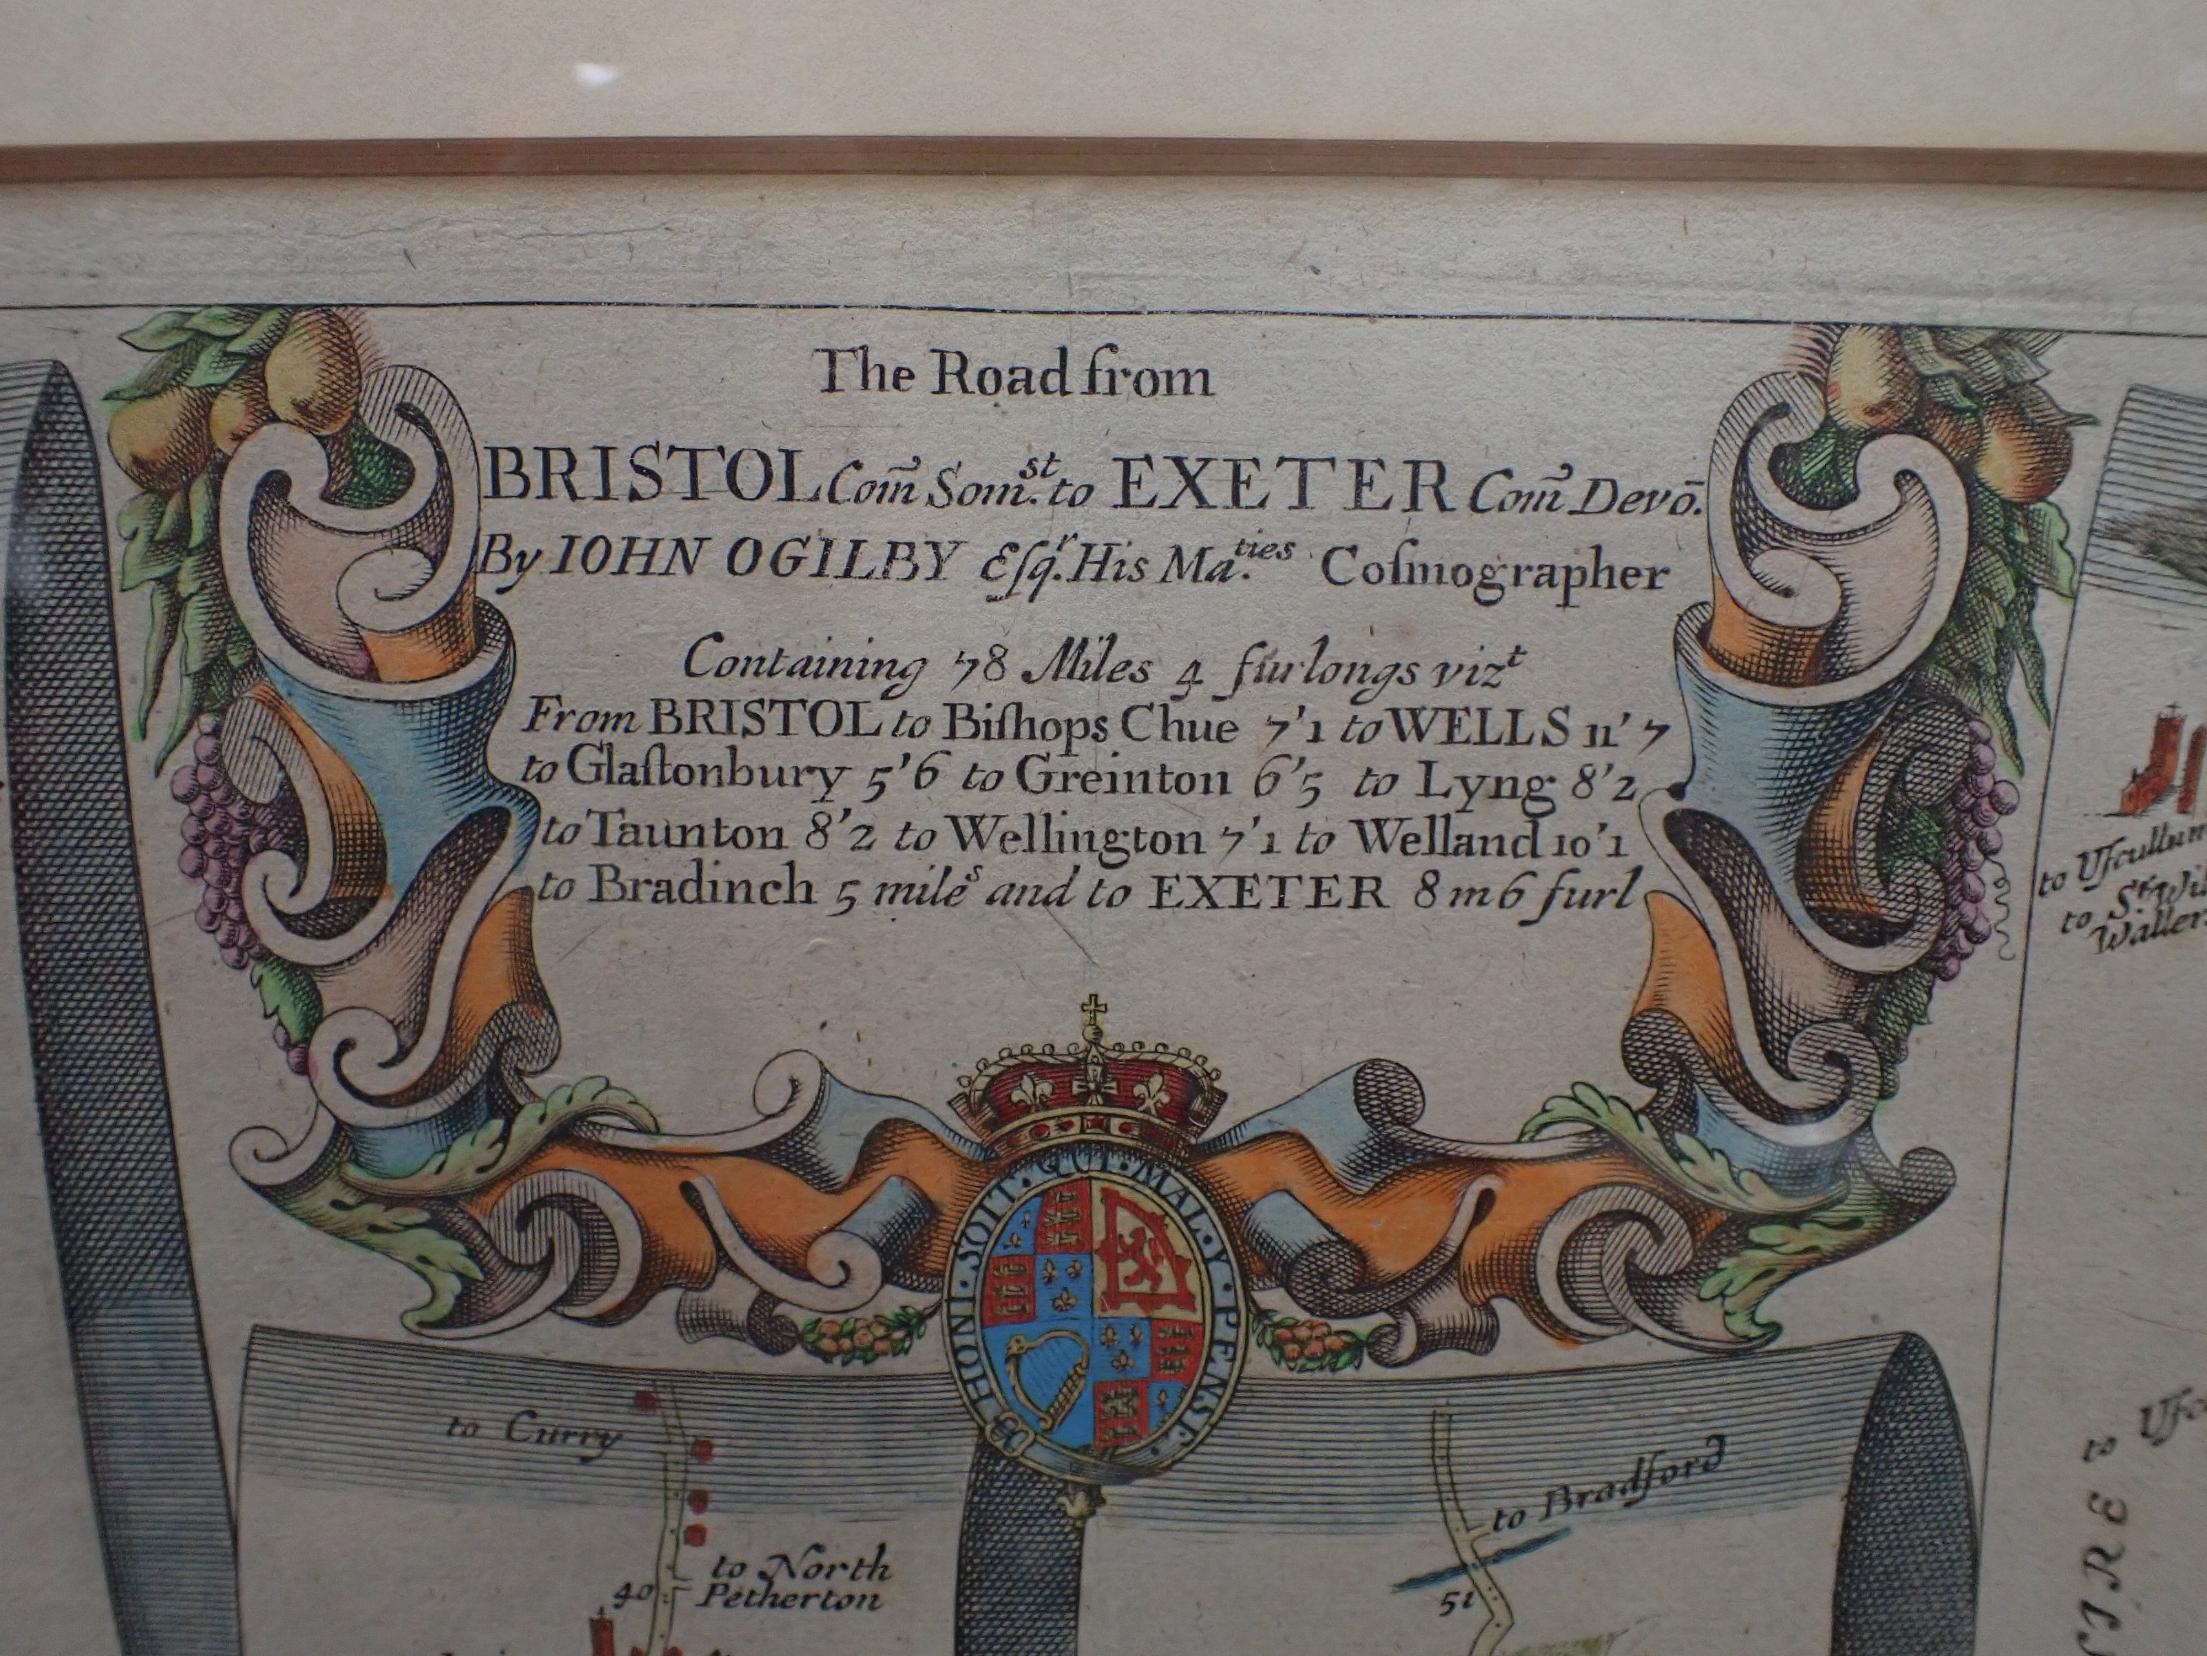 The Road from
BRISTOL Com̃ Som.st to EXETER Com̃ Devō.
By IOHN OGILBY Eſq.r His Ma.ties Coſmographer
Containing 78 Miles 4 furlongs vizt
From BRISTOL to Biſhops Chue 7'1 to WELLS 11'7
to Glaſtonbury 5'6 to Greinton 6'5 to Lyng 8'2
to Taunton 8'2 to Wellington 7'1 to Welland 10'1
to Bradinch 5 miles and to EXETER 8 m 6 furl
HONI · SOIT · QUI · MAL · Y · PENSE ·
to Curry
to North
Petherton
40
to Bradford
51
to Uſcullum
to St
Waller
to